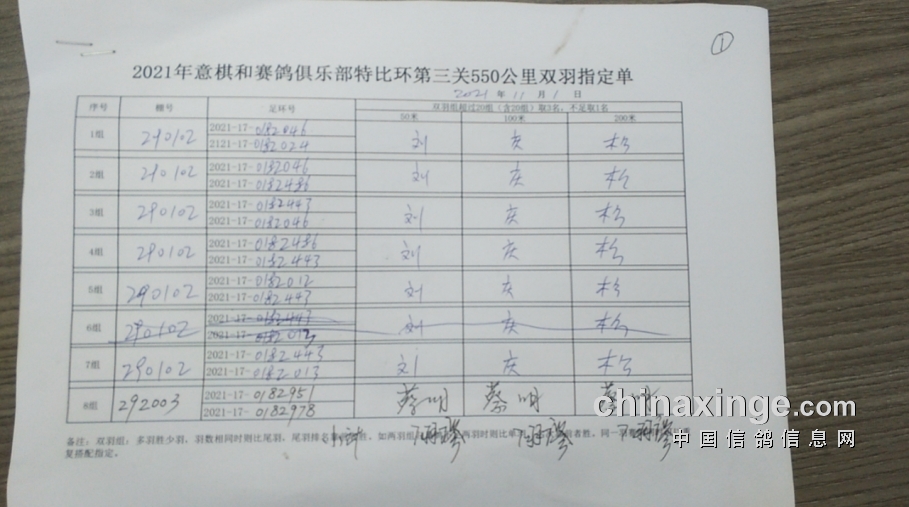 ①
2021年意棋和赛鸽俱乐部特比环第三关550公里双羽指定单
2021 年 11 月 1 日
序号 棚号 足环号 双羽组超过20组（含20组）取3名，不足取1名
50米 100米 200米
1组 290102 2021-17-0182046 刘 庆 松
2121-17-0182024
2组 290102 2021-17-0182046 刘 庆 松
2021-17-0182436
3组 290102 2021-17-0182443 刘 庆 松
2021-17-0182046
4组 290102 2021-17-0182436 刘 庆 松
2021-17-0182443
5组 290102 2021-17-0182012 刘 庆 松
2021-17-0182443
6组 290102 2021-17-0182443 刘 庆 松
2021-17-0182013
7组 290102 2021-17-0182443 刘 庆 松
2021-17-0182013
8组 292003 2021-17-0182951 蔡明 蔡明 蔡明
2021-17-0182978
备注：双羽组：多羽胜少羽，羽数相同时则比尾羽，尾羽排名 胜，如两羽组 两羽时则比单 者胜。同一羽
复搭配指定。
chinaxinge.com
中国信鸽信息网